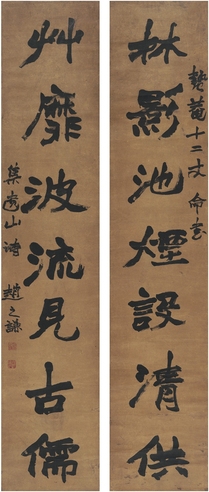 林影池煙設清供
𢡟葊十二丈命書
艸靡波流見古儒
集遺山詩
趙之謙